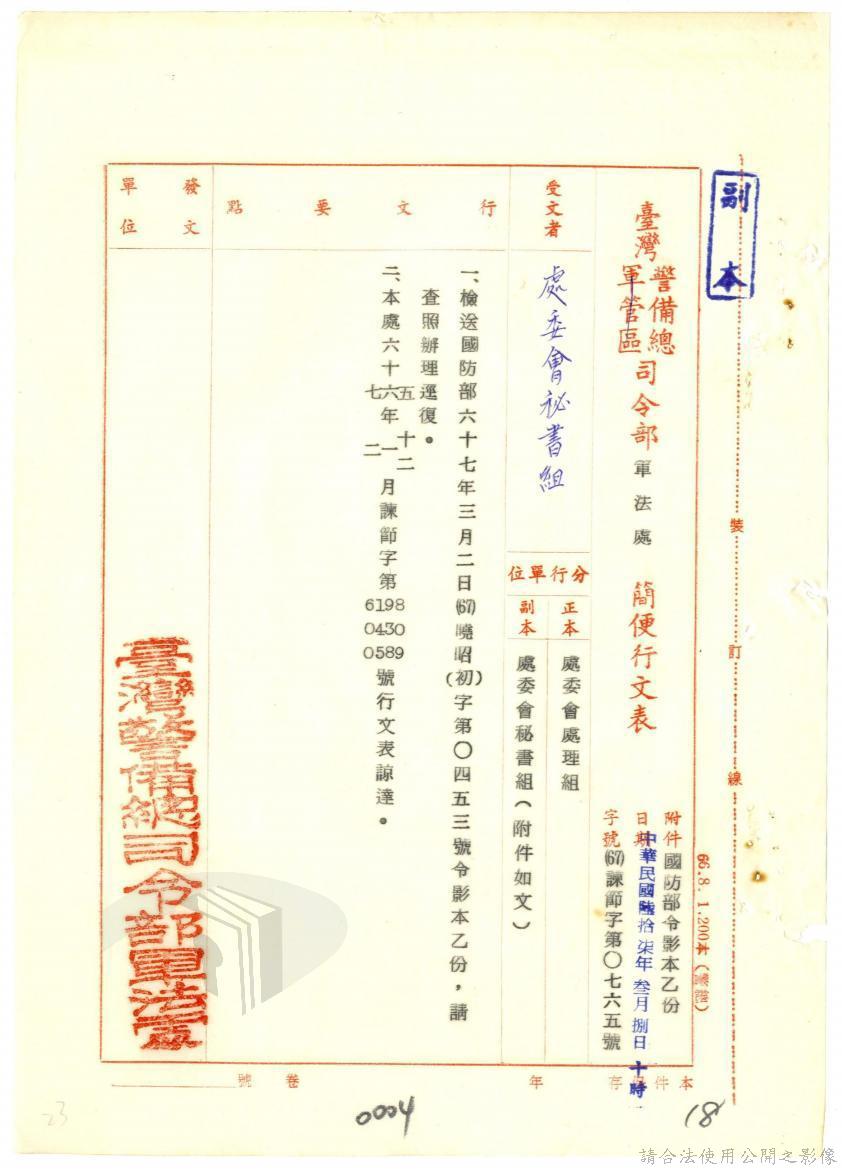 副本
裝
訂
線
66.8.1.200本
臺灣警備總軍管區司令部軍法處 簡便行文表
附件 國防部令影本乙份
日期 中華民國陸拾柒年叁月捌日十時
字號 (67)諫節字第〇七六五號
受文者
處委會祕書組
分行單位
正本
處委會處理組
副本
處委會秘書組(附件如文)
行文要點
一、檢送國防部六十七年三月二日(67)曉昭(初)字第〇四五三號令影本乙份,請
查照辦理逕復。
二、本處六十五六七年十二一二月諫節字第6198 0430 0589號行文表諒達。
發文單位
臺灣警備總司令部軍法處
本件保存
年
卷
號
0004
18
23
請合法使用公開之影像